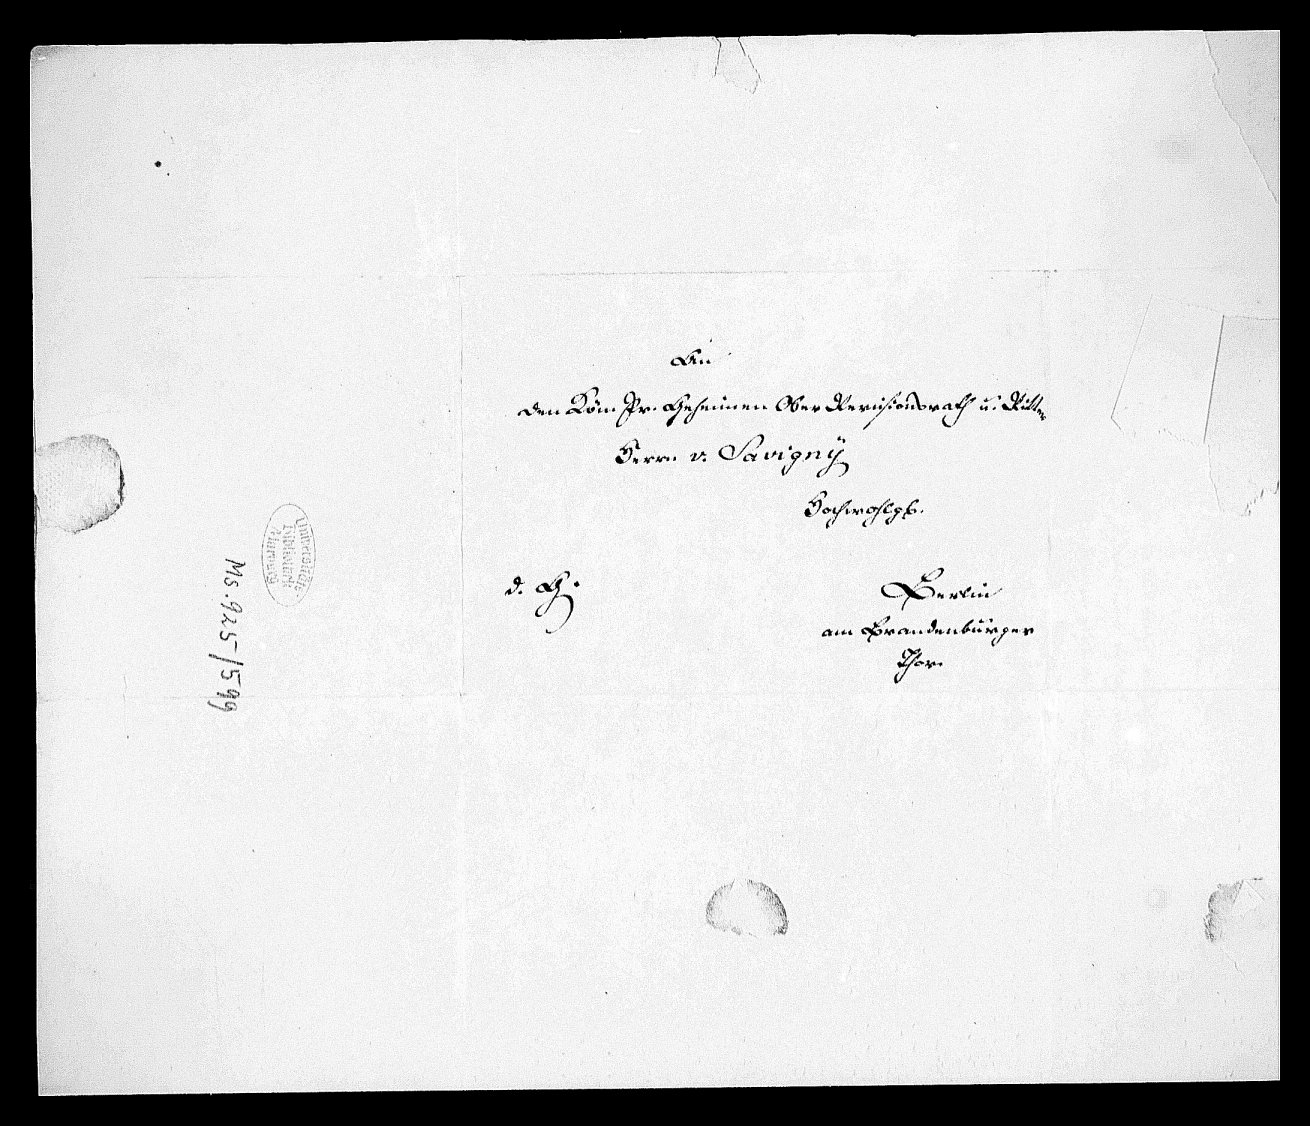 An
den Kön. Pr. Geheimen Ober Revisionsrath u. Ritter
Herrn v. Savigny
Hochwohlgb.
d. G.
Berlin
am Brandenburger
Thor.
Universitäts-
Bibliothek
Marburg
Ms. 925/599